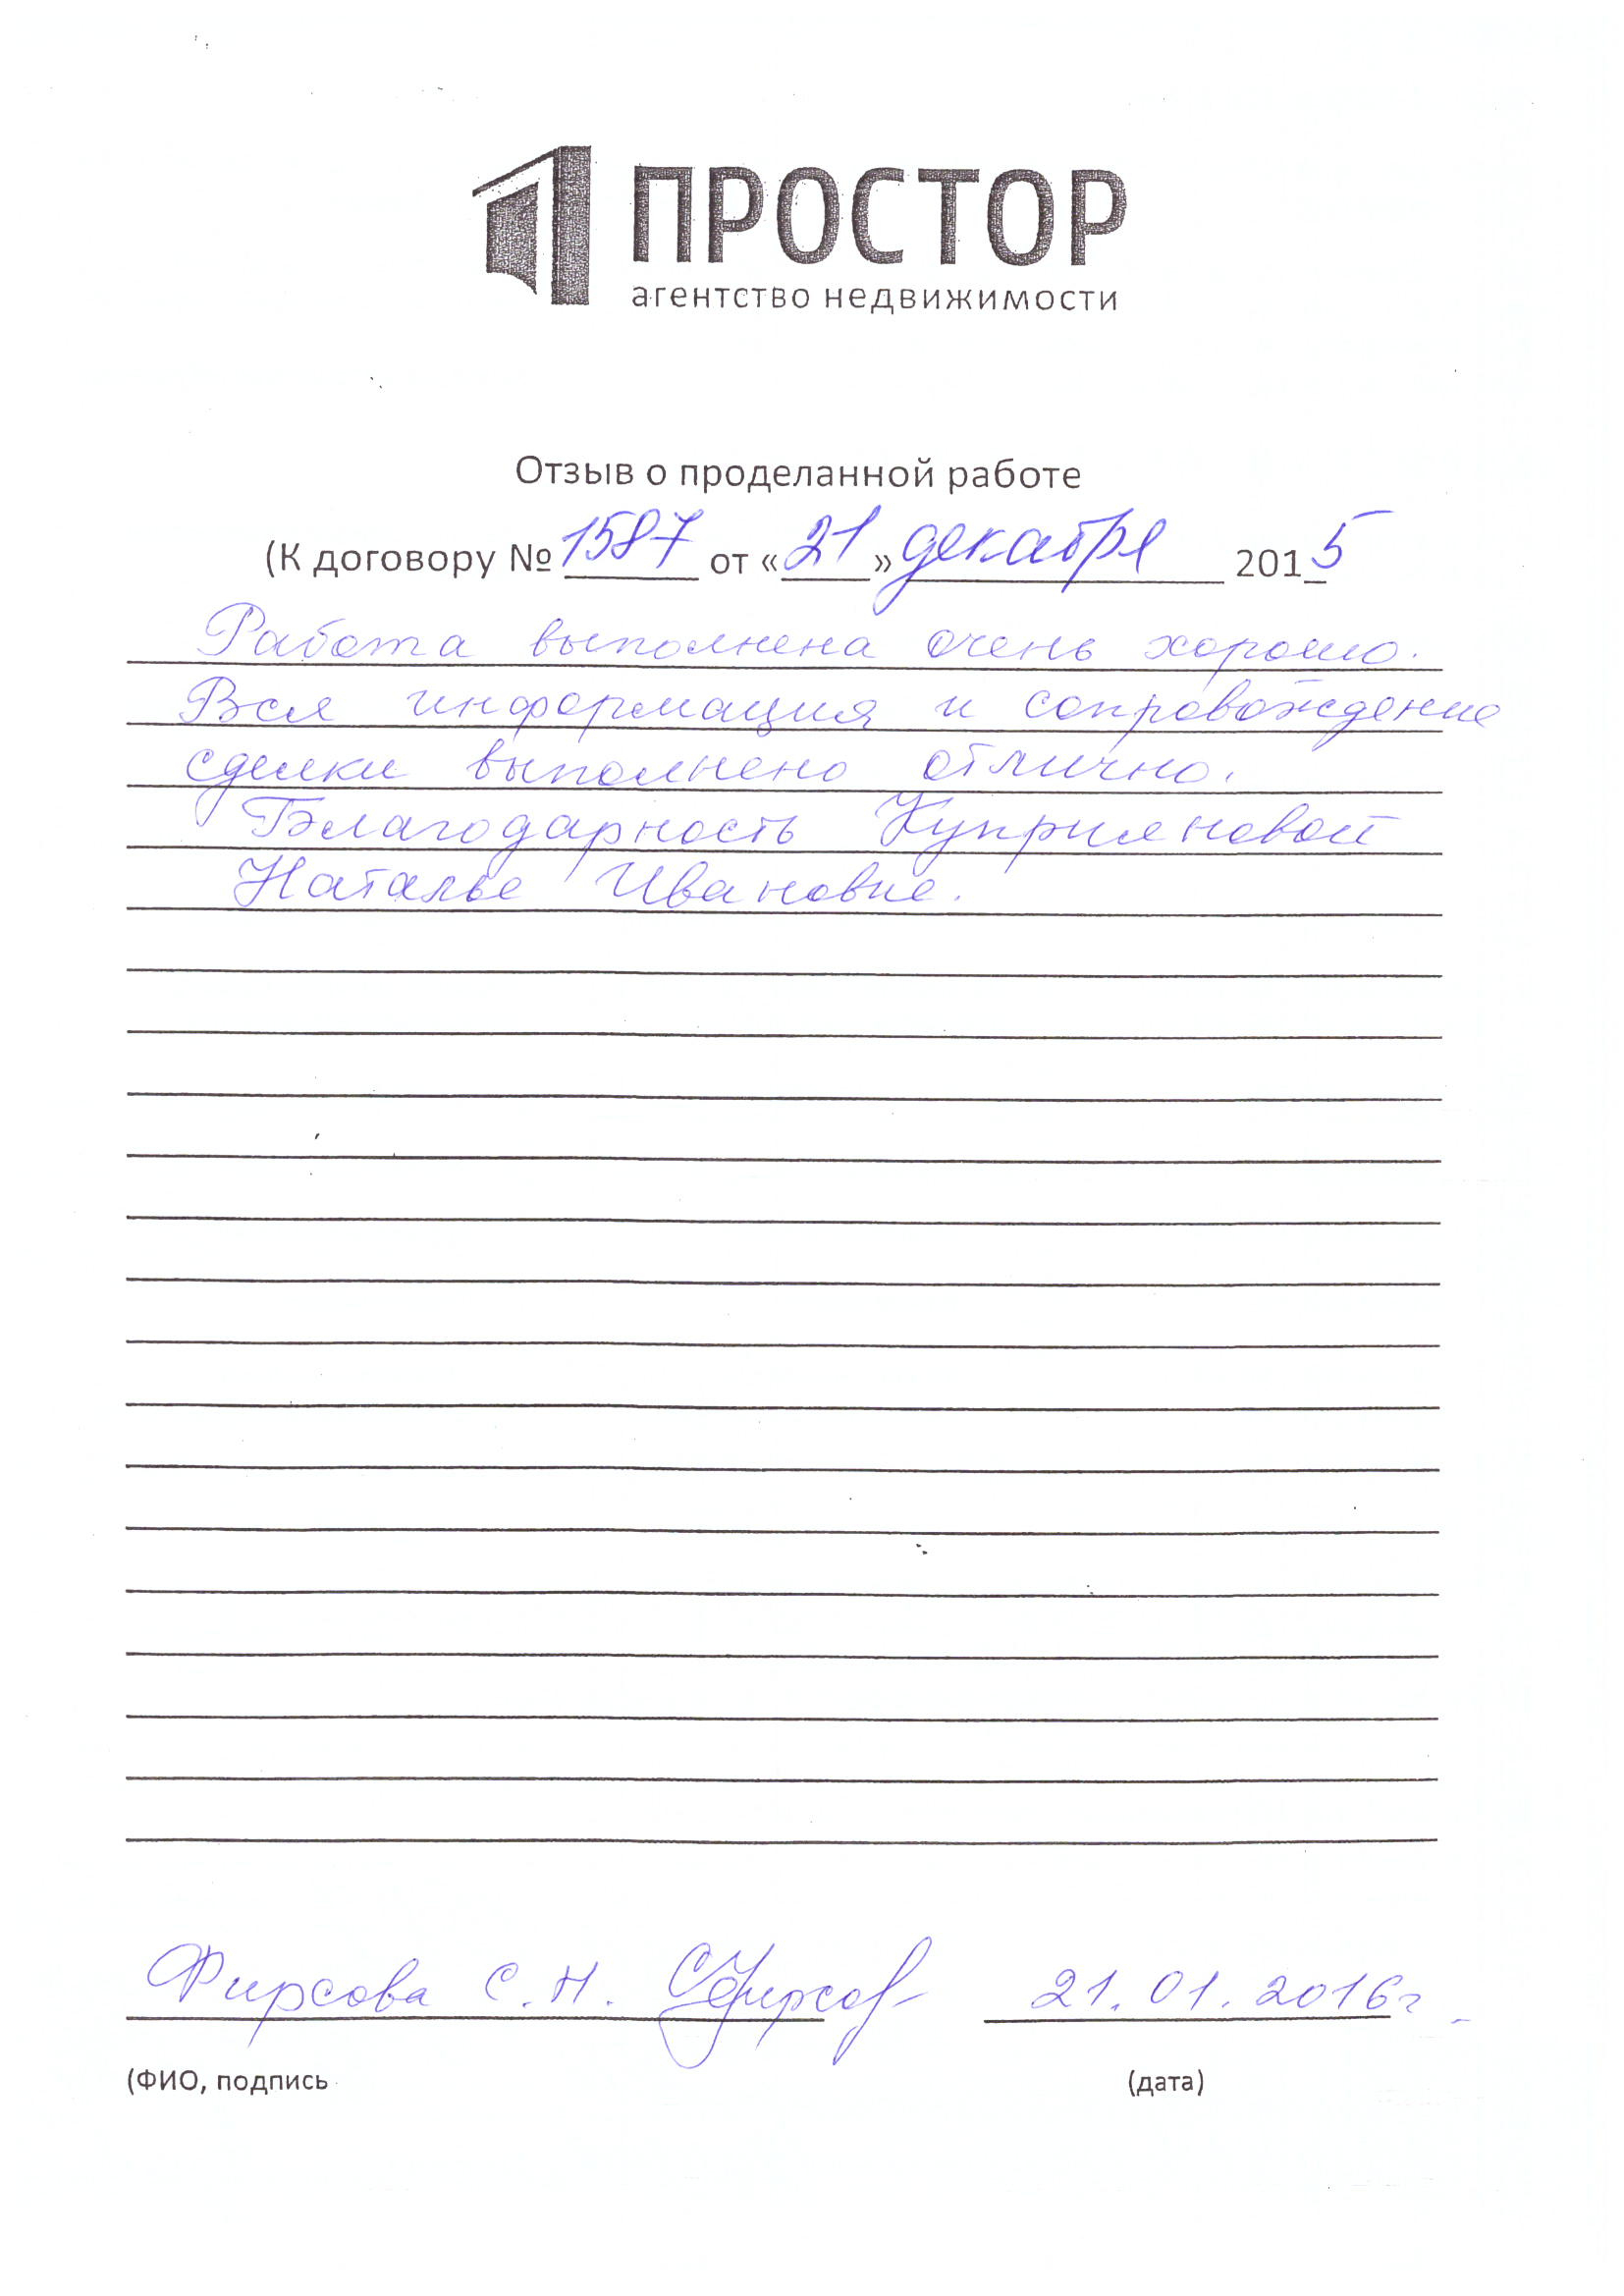 ПРОСТОР
агентство недвижимости
Отзыв о проделанной работе
(К договору № 1587 от «21» декабря 2015
Работа выполнена очень хорошо.
Вся информация и сопровождение
сделки выполнено отлично.
Благодарность Куприяновой
Наталье Ивановне.
Фирсова С.Н. СФирсов 21.01.2016г
(ФИО, подпись (дата)